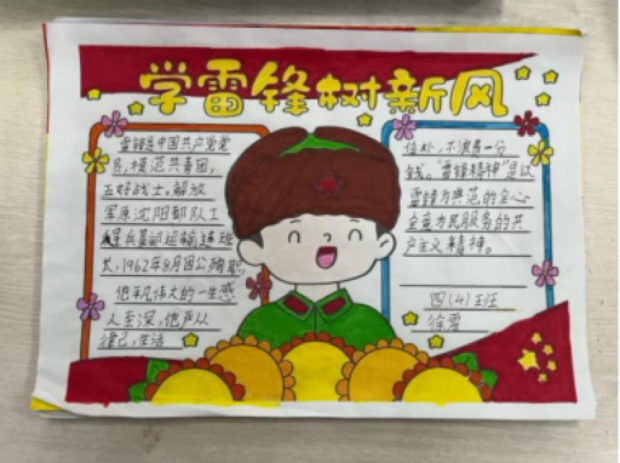 学雷锋树新风
雷锋是中国共产党党
员,模范共青团,
五好战士。解放
军原沈阳部队工
程兵某部运输连班
长,1962年8月因公殉职
他平凡伟大的一生感
人至深,他严从
律己,生活
俭处,不浪费一分
钱。"雷锋精神"是以
雷锋为典范的全心
全意为民服务的共
产主义精神。
四(4)班
徐